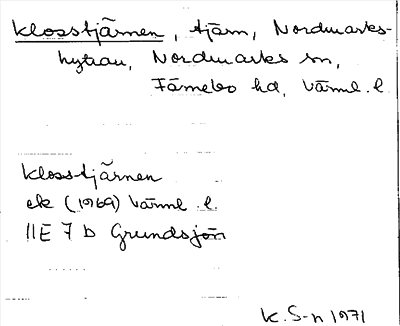 Klosstjärnen, tjärn, Nordmarks-
hyttan, Nordmarks sn,
Färnebo hd, Värml. l.
Klosstjärnen
ek (1969) Värml. l.
11E 7 b Grundsjön
K. S-n 1971